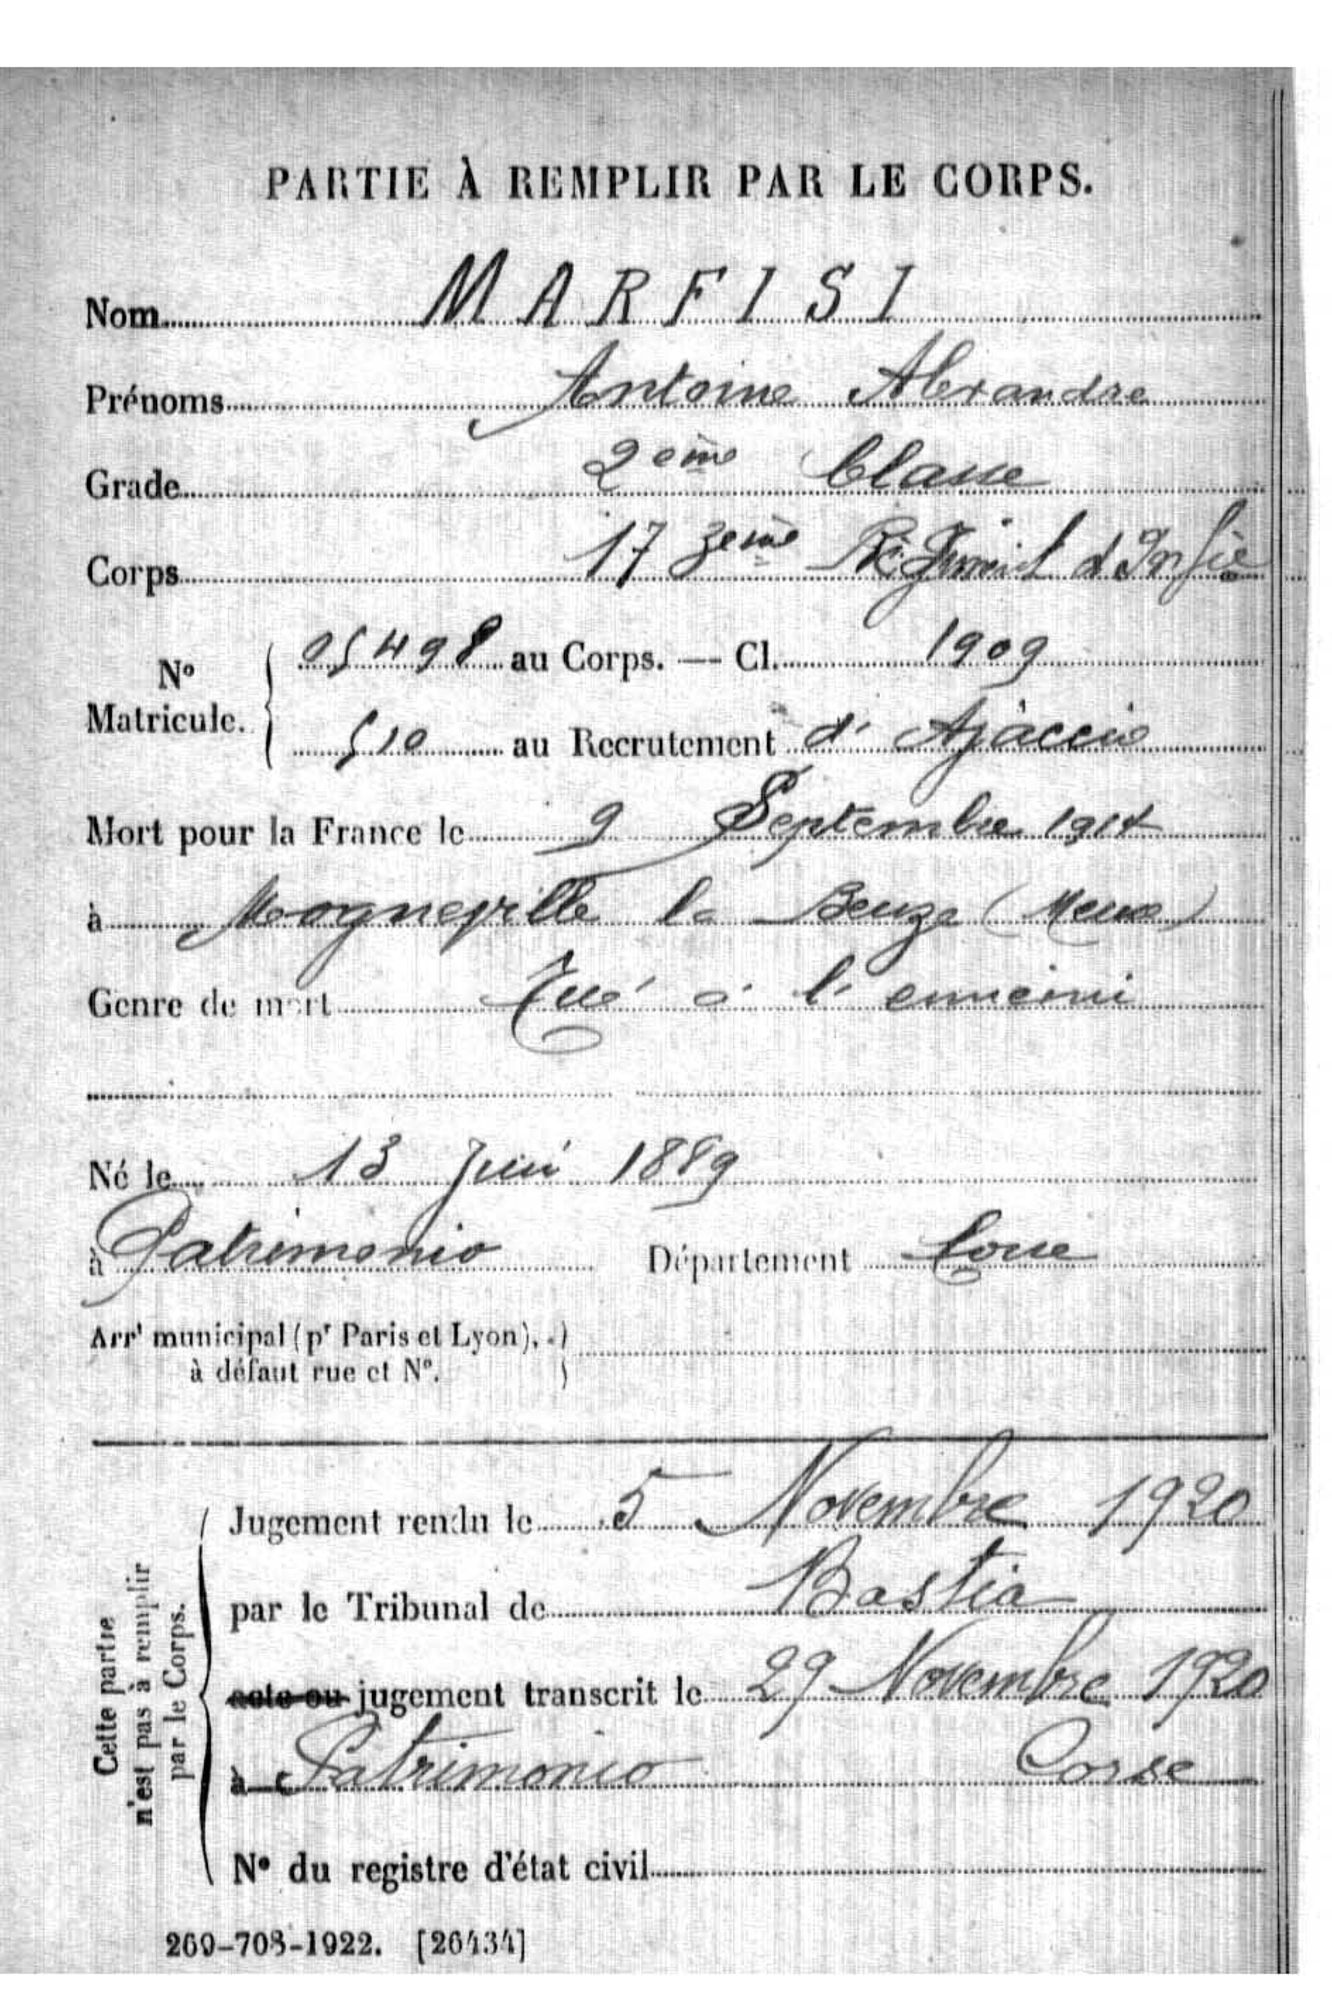 PARTIE À REMPLIR PAR LE CORPS.
Nom MARFISI
Prénoms Antoine Alexandre
Grade 2ème Classe
Corps 173ème Régiment d'Infie
No Matricule. 05498 au Corps. — Cl. 1909
510 au Recrutement d'Ajaccio
Mort pour la France le 9 Septembre 1914
à Mogneville la (Meuse)
Genre de mort Tué à l'ennemi
Né le 13 Juin 1889
à Patrimonio Département Corse
Arrt municipal (pr Paris et Lyon),
à défaut rue et No.
Cette partie n'est pas à remplir par le Corps.
Jugement rendu le 5 Novembre 1920
par le Tribunal de Bastia
acte ou jugement transcrit le 29 Novembre 1920
à Patrimonio Corse
No du registre d'état civil
269-708-1922. [26434]